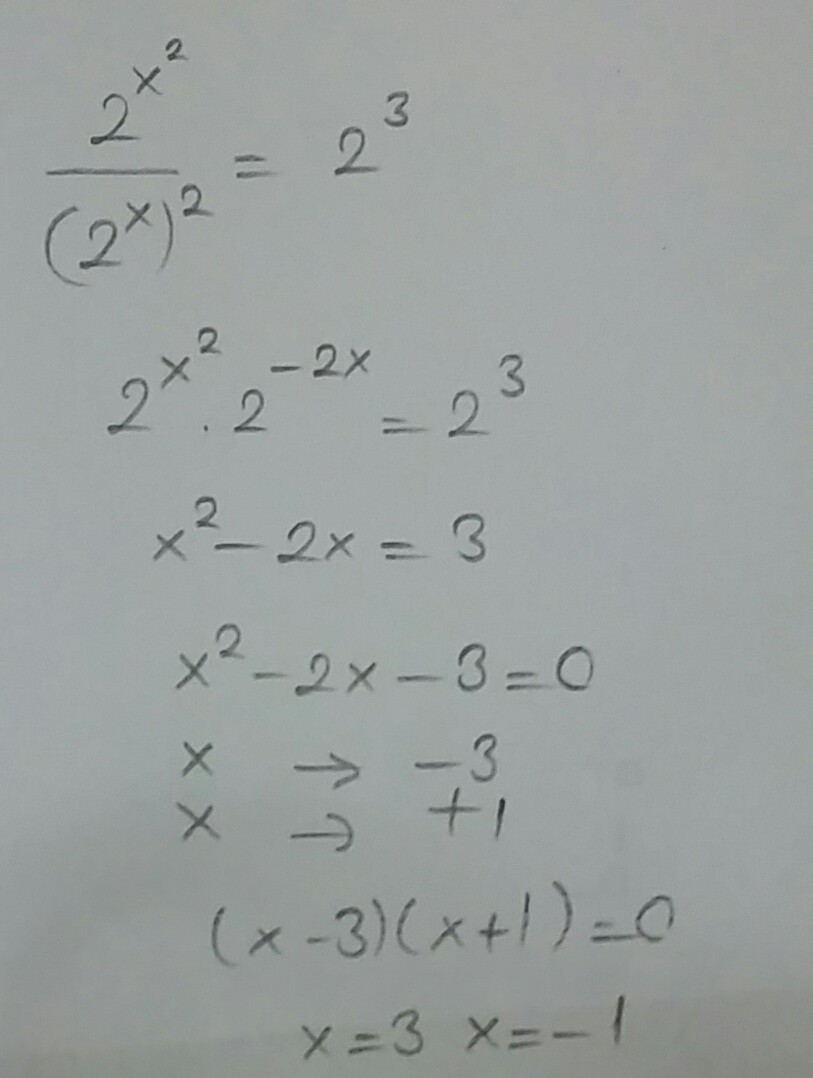 2^{x^2} / (2^x)^2 = 2^3
2^{x^2} . 2^{-2x} = 2^3
x^2 - 2x = 3
x^2 - 2x - 3 = 0
x → -3
x → +1
(x - 3)(x + 1) = 0
x = 3 x = -1